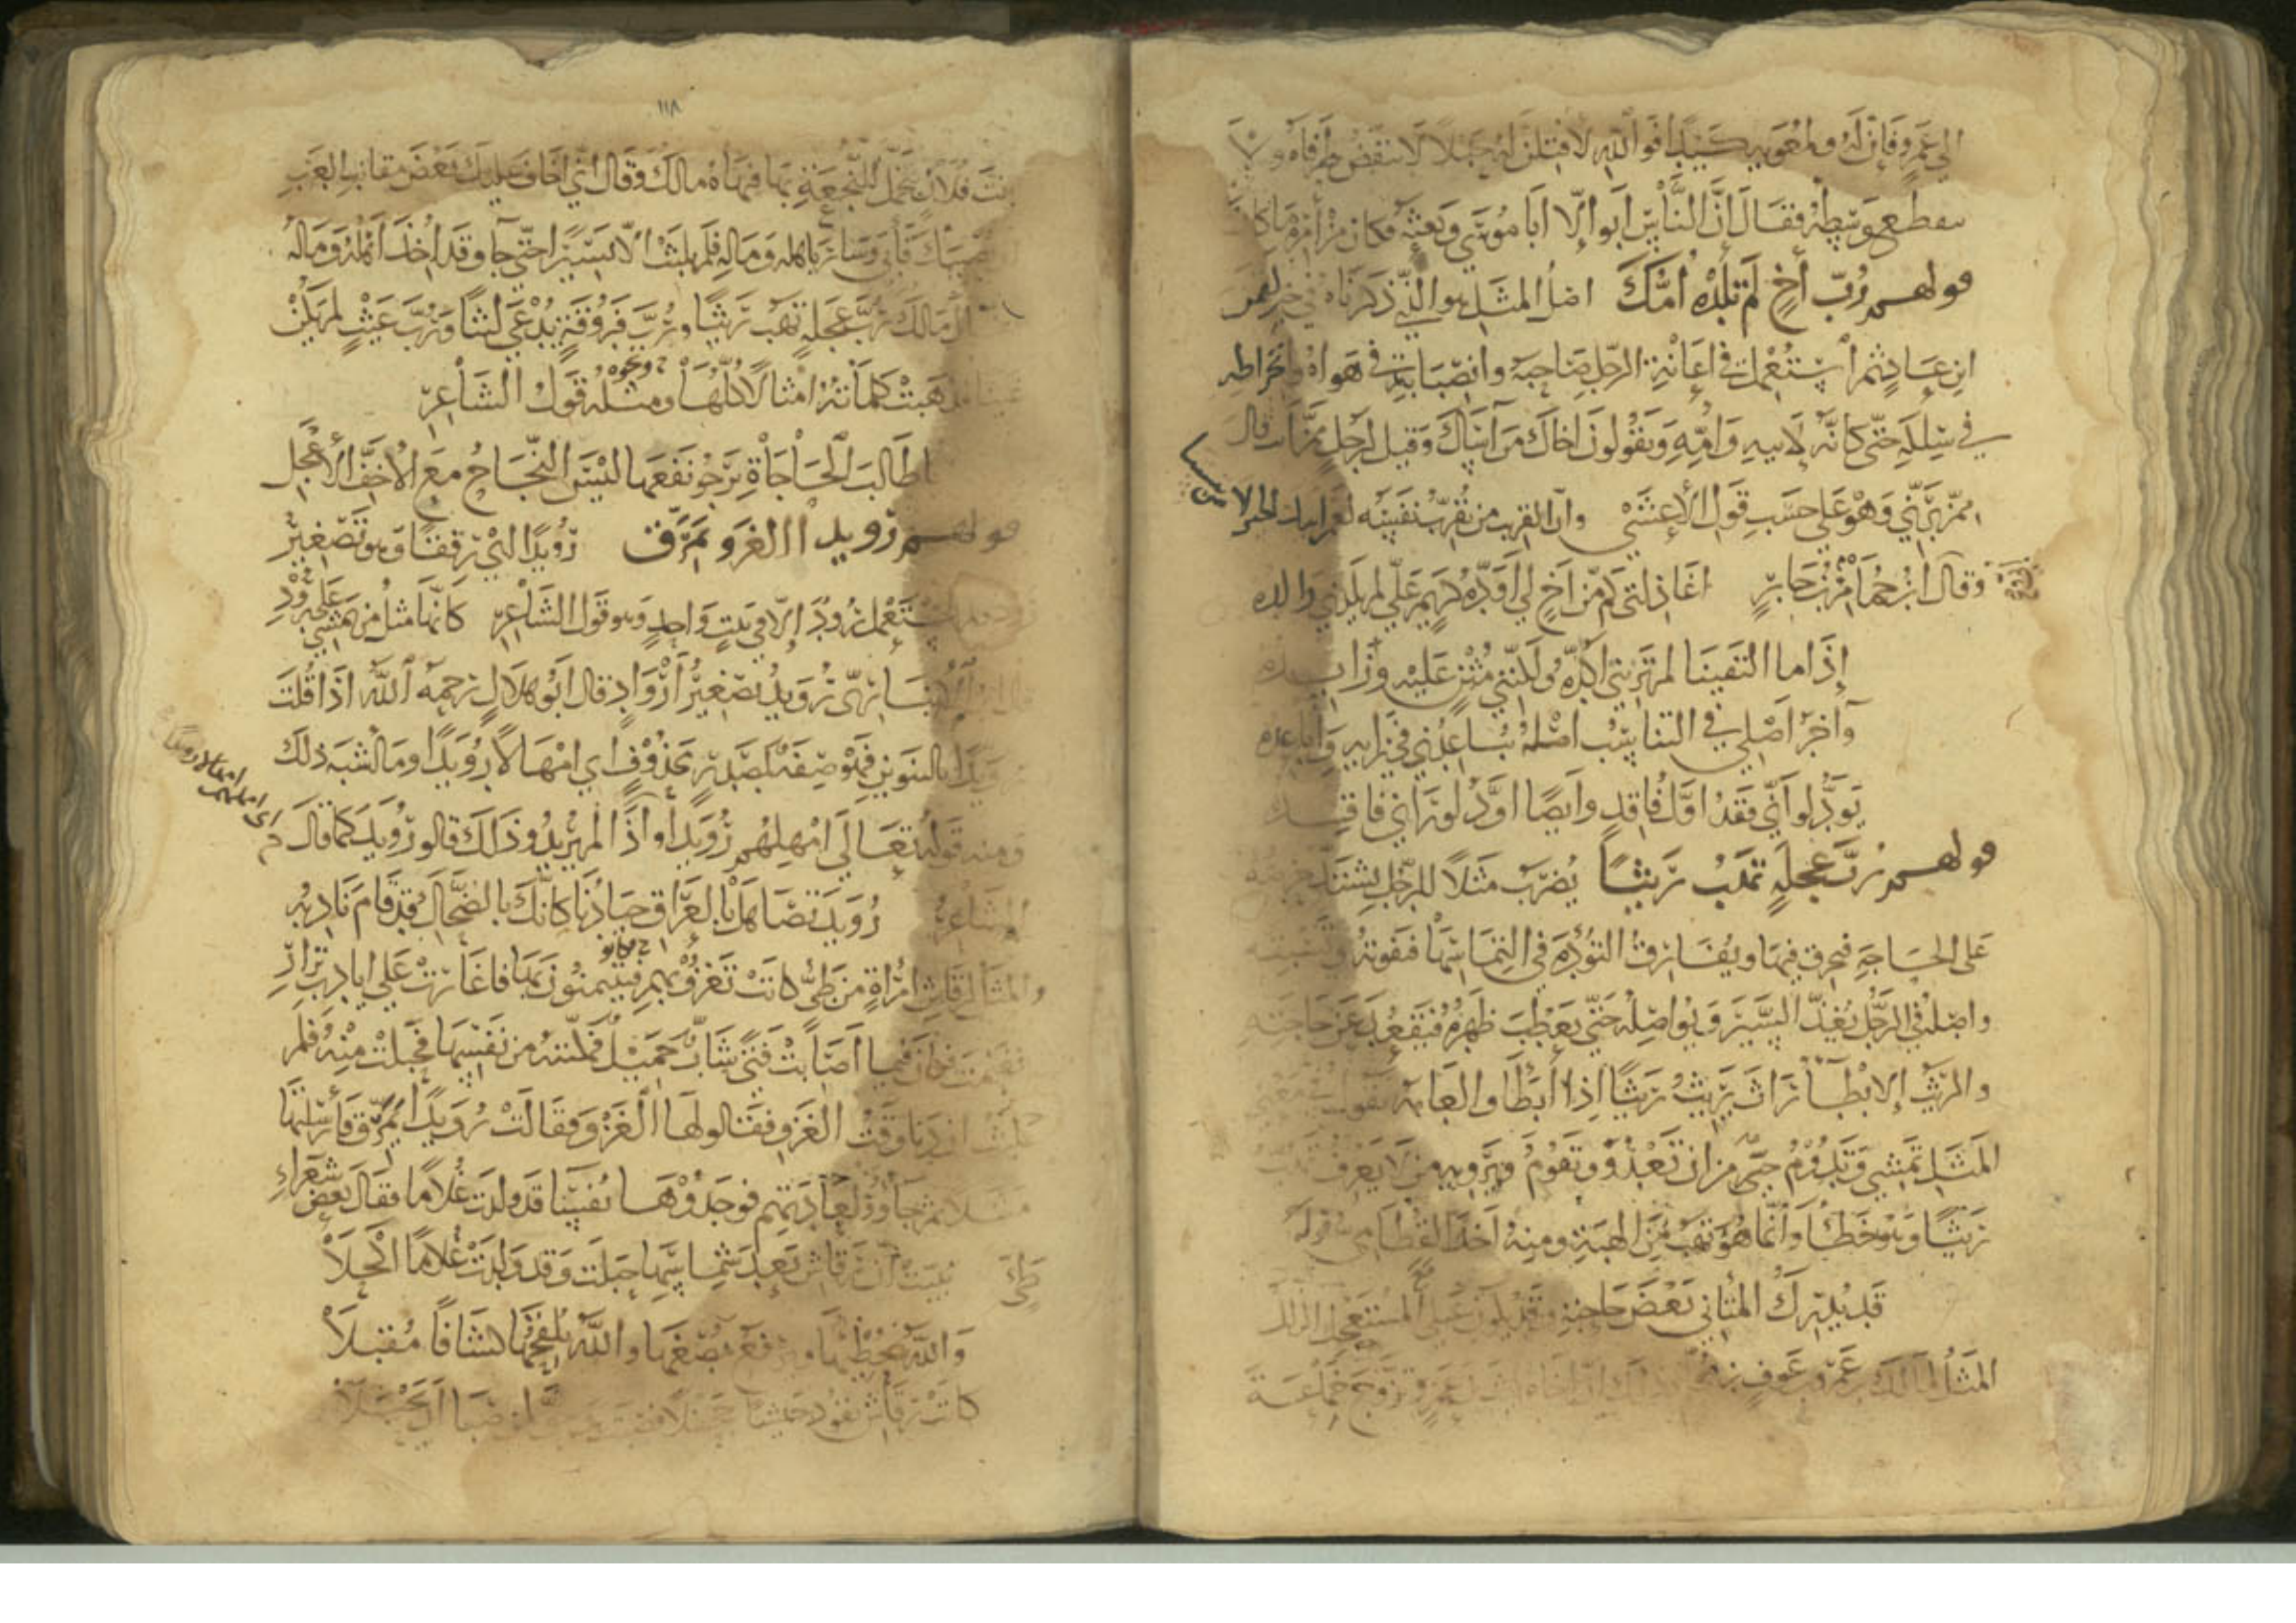 الي عمرو فان له ولمعوية كيدا فوالله لافتلن له حبلا لا ينتقض طرفاه ولا
ينقطع وسطه فقال ان الناس ابوا الا ابا موسي وبعثه فكان من امره ما كان
قولهم رب اخ لم تلده امك اصل المثل هو الذي ذكرناه في خبر لقمن
ابن عاد ثم استعمل في اعانة الرجل صاحبه وانصبابه في هواه وانخراطه
في سلكه حتى كانه لابيه وامه ويقولون اخاك من آساك وقيل لرجل من اخـ قال
وهو على حسب قول الاعشى وان القريب من يقرب نفسه لعمر ابيك الخير لا من
وقال ابن حمام بن جابر اعاذلتي كم من اخ لي اوده كريم علي لم يلدني والده
إذا ما التقينا لم تربني اكده ولكنني مثن عليه وزايده
وآخر اصلي في التناسب اصله يباعدني في رايه واباعده
يود لو اني فقد اول فاقد وايضا اود لو اني فاقده
قولهم رب عجلة تهب ريثا يضرب مثلا للرجل يشتد حرصه
على الحاجة فيخرق فيها ويفارق التؤدة في التماسها فتفوته وتسبقه
واصله في الرجل يغذ السير ويواصله حتى يعطب ظهره فيقعد عن حاجته
والريث الابطا راث يريث ريثا اذا ابطا والعامة تقول في معني
المثل تمشي وتدوم خير من ان تعدو وتقوم ويرويه من لا يعرف تهب
ريثا وهو خطا وانما هو تهب من الهبة ومنه اخذ القطامي قوله
قد يدرك المتاني بعض حاجته وقد يكون على المستعجل الزلل
المثل لمالك بن عمرو بن عوف بن وذلك ان اخاه عمرو تزوج خماعة
١١٨
بنت فلان تحمل للنجعة بها فنهاه مالك وقال اني اخاف عليك بعض مقانب العرب
ان تصيبك فابي وسار باهله وماله فلم يلبث الا يسيرا حتى جا وقد اخذ اهله وماله
فقال مالك رب عجلة تهب ريثا ورب فروقة يدعي ليثا ورب غيث لم يكن
غيثا فذهبت كلماته امثالا كلها ومثله قول الشاعر
ونحوه
اطالب الحاجاة يرجو نفعها ليس النجاح مع الاخف الاعجل
قولهم رويدا الغزو يمرق رويدا اي رفقا وهو تصغير
رود ولم يستعمل رود إلا في بيت واحد وهو قول الشاعر كانها مثل من يمشي على رود
الكسائي رويد تصغير ارواد قال ابو هلال رحمه الله اذا قلت
رويدا بالتنوين فهو صفة لمصدر محذوف اي امهالا رويدا وما اشبه ذلك
اي امهلهم امهالا رويدا
ومنه قوله تعالي امهلهم رويدا واذا لم يريدوا ذلك قالو رويد كما قال
الشاعر رويد تصاهل بالعراق جيادنا كانك بالضحاك قد قام نادبه
والمثل لرقاش امراة من طي كانت تغزو بهم فيتيمنون بها فاغارت على اياد بن نزار
وكانو
فغنمت وكان فيما اصابت فتى شاب جميل فمكنته من نفسها فحبلت منه فلم
تلبث ان دنا وقت الغزو فقالو لها الغزو فقالت رويدا يمرق فارسلتها
مثلا ثم جاؤو لعادتهم فوجدوها نفسا قد ولدت غلاما فقال بعض شعراء
طي نبيت ان رقاش بعد شماسها حبلت وقد ولدت غلاما اكحلا
والله يحظيها ويرفع بضعها والله يلقحها كشافا مقبلا
كانت رقاش تقود جيشا جحفلا فصبت وحق لمن صبا ان يحبلا